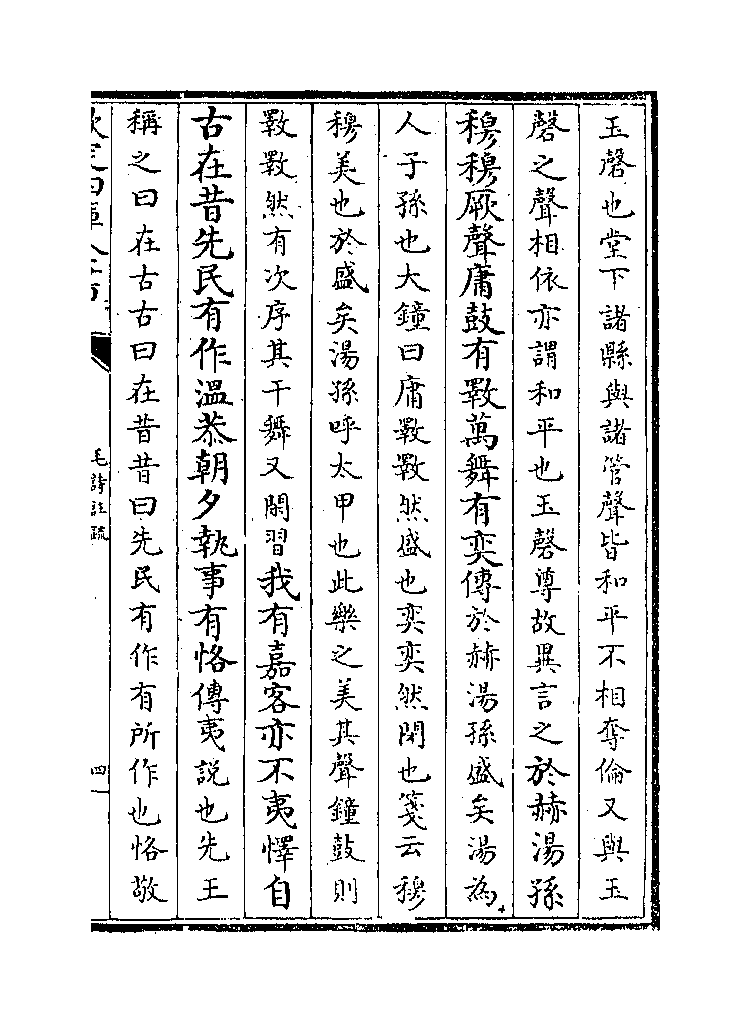 玉磬也堂下諸縣與諸管聲皆和平不相奪倫又與玉
磬之聲相依亦謂和平也玉磬尊故異言之於赫湯孫
穆穆厥聲庸鼓有斁萬舞有奕傳於赫湯孫盛矣湯為
人子孫也大鐘曰庸斁斁然盛也奕奕然閑也箋云穆
穆美也於盛矣湯孫呼太甲也此樂之美其聲鐘鼓則
斁斁然有次序其干舞又閑習我有嘉客亦不夷懌自
古在昔先民有作溫恭朝夕執事有恪傳夷說也先王
稱之曰在古古曰在昔昔曰先民有作有所作也恪敬
毛詩註疏
四一